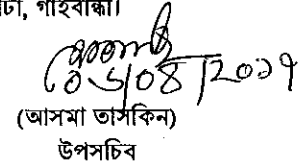 টা, গাইবান্ধা।
০৬/০৪/২০১৭
(আসমা তাসকিন)
উপসচিব